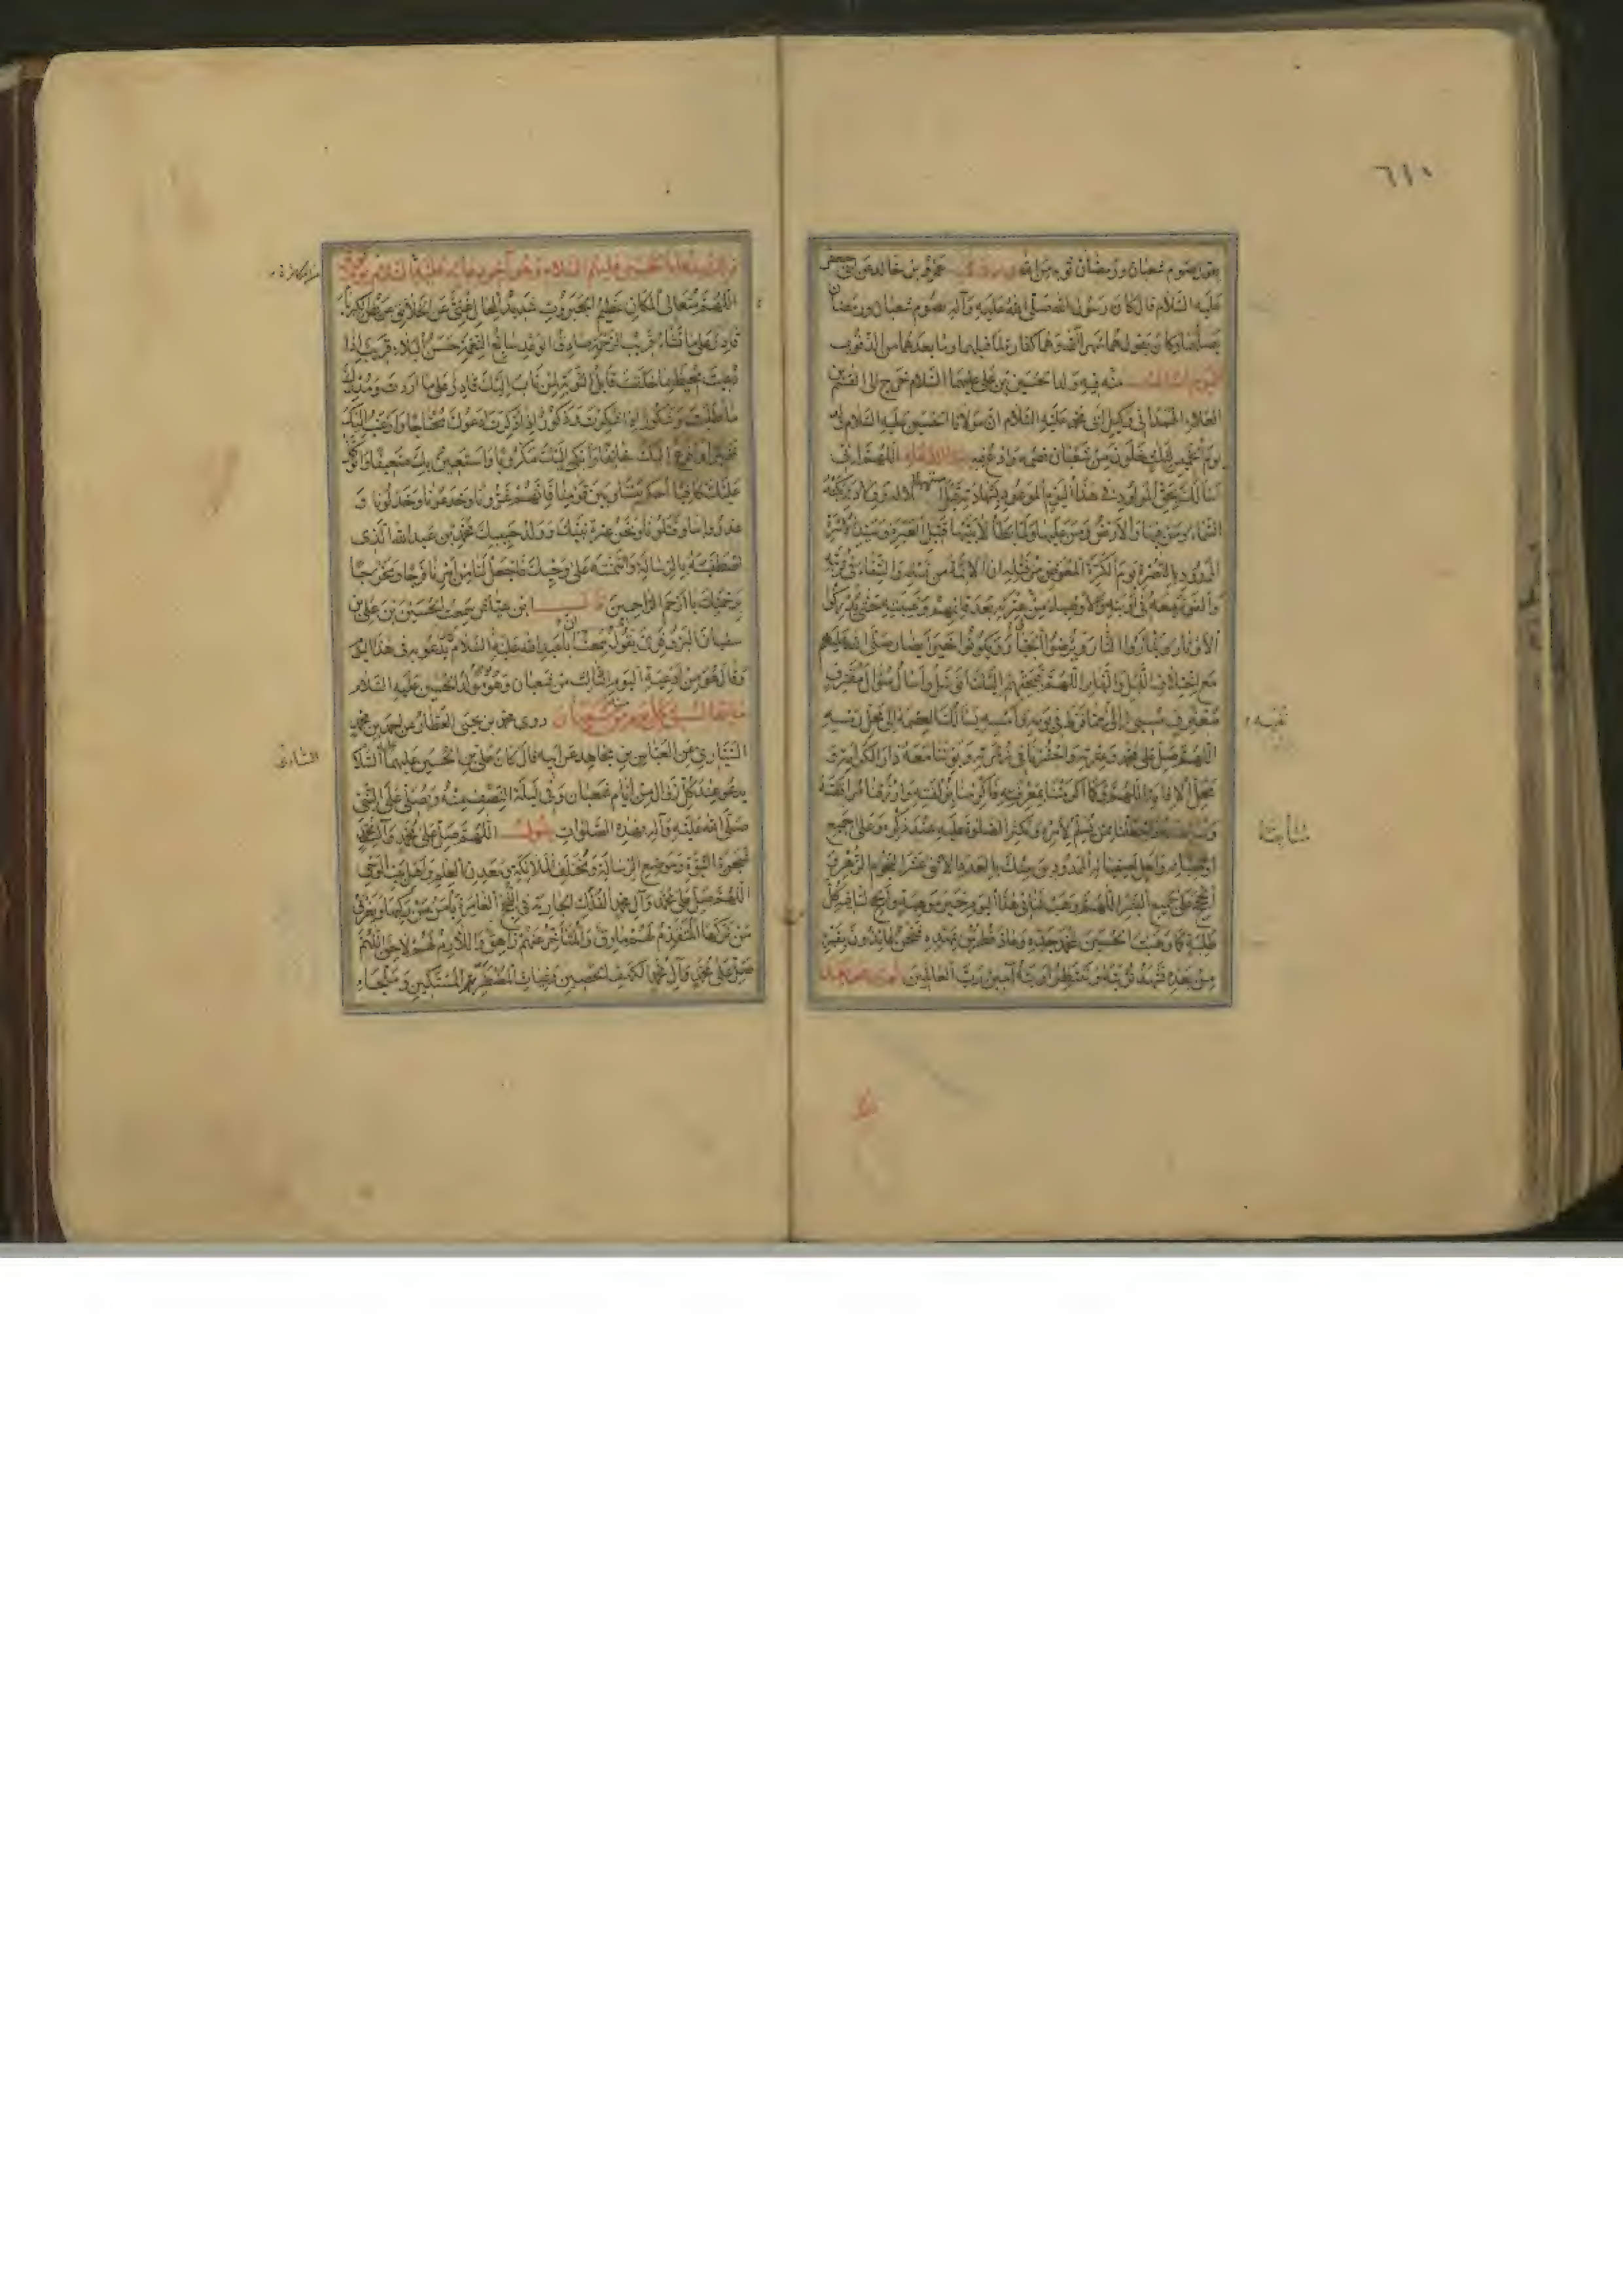 ٦١٠
يقول صوم شعبان ورمضان توبة من الله وروى عمرو بن خالد عن أبي جعفر
عليه السلام قال كان رسول الله صلى الله عليه وآله يصوم شعبان ورمضان
يصلهما وكان يقول هما شهر الله وهما كفارة لما قبلهما وما بعدهما من الذنوب
اليوم الثالث منه فيه ولد الحسين بن علي عليهما السلام خرج إلى القسم بن
العلاء الهمداني وكيل أبي محمد عليه السلام ان مولانا الحسين عليه السلام ولد
يوم الخميس لثلث خلون من شعبان فصمه وادع فيه بهذا الدعاء اللهم إني
أسألك بحق المولود في هذا اليوم الموعود بشهادته قبل استهلاله وولادته بكته
السماء ومن فيها والأرض ومن عليها ولما يطأ لابتيها قتيل العبرة وسيد الأسرة
الممدود بالنصرة يوم الكرة المعوض من قتله ان الأئمة من نسله والشفاء في تربته
والفوز معه في أوبته والأوصياء من عترته بعد قائمهم وغيبته حتى يدركوا
الأوتار ويثأروا الثار ويرضوا الجبار ويكونوا خير أنصار صلى الله عليهم
مع اختلاف الليل والنهار اللهم فبحقهم إليك أتوسل وأسأل سؤال مقترف
معترف مسيئ إلى نفسه مما فرط في يومه وأمسه يسألك العصمة إلى محل رمسه
نفسه
اللهم صل على محمد وعترته واحشرنا في زمرته وبوئنا معه دار الكرامة و
محل الإقامة اللهم وكما أكرمتنا بمعرفته فأكرمنا بزلفته وارزقنا مرافقته
وسابقته واجعلنا ممن يسلم لأمره ويكثر الصلوة عليه عند ذكره وعلى جميع
متابعته
أوصيائه وأهل اصفيائه الممدودين منك بالعدد الاثنى عشر النجوم الزهر و
الحجج على جميع البشر اللهم وهب لنا في هذا اليوم خير موهبة وأنجح لنا فيه كل
طلبة كما وهبت الحسين لمحمد جده وعاذ فطرس بمهده فنحن عائذون بقبره
من بعده نشهد تربته وننتظر أوبته آمين رب العالمين ثم تدعو بعد ذلك
بدعاء الحسين عليه السلام وهو آخر دعائه عليه السلام يوم
اللهم متعالي المكان عظيم الجبروت شديد المحال غني عن الخلائق عريض الكبرياء
قادر على ما تشاء قريب الرحمة صادق الوعد سابغ النعمة حسن البلاء قريب إذا
دعيت محيط بما خلقت قابل التوبة لمن تاب إليك قادر على ما أردت ومدرك
ما طلبت وشكور إذا شكرت وذكور إذا ذكرت أدعوك محتاجا وأرغب إليك
فقيرا وأفزع إليك خائفا وأبكي إليك مكروبا وأستعين بك ضعيفا وأتوكل
عليك كافيا أحكم بيننا وبين قومنا فإنهم غرونا وخدعونا وخذلونا و
غدروا بنا وقتلونا ونحن عترة نبيك وولد حبيبك محمد بن عبد الله الذي
اصطفيته بالرسالة وائتمنته على وحيك فاجعل لنا من أمرنا فرجا ومخرجا
برحمتك يا أرحم الراحمين قال ابن عياش سمعت الحسين بن علي بن
سفيان البزوفري يقول سمعت أبا عبد الله عليه السلام يدعو به في هذا اليوم
وقال هو من أدعية اليوم الثالث من شعبان وهو مولد الحسين عليه السلام
روى محمد بن يحيى العطار عن أحمد بن محمد
السياري عن العباس بن مجاهد عن أبيه قال كان علي بن الحسين عليهما السلام
السياري
يدعو عند كل زوال من أيام شعبان وفي ليلة النصف منه ويصلي على النبي
صلى الله عليه وآله بهذه الصلوات يقول اللهم صل على محمد وآل محمد
شجرة النبوة وموضع الرسالة ومختلف الملائكة ومعدن العلم وأهل بيت الوحي
اللهم صل على محمد وآل محمد الفلك الجارية في اللجج الغامرة يأمن من ركبها ويغرق
من تركها المتقدم لهم مارق والمتأخر عنهم زاهق واللازم لهم لاحق اللهم
صل على محمد وآل محمد الكهف الحصين وغياث المضطر المستكين وملجاء